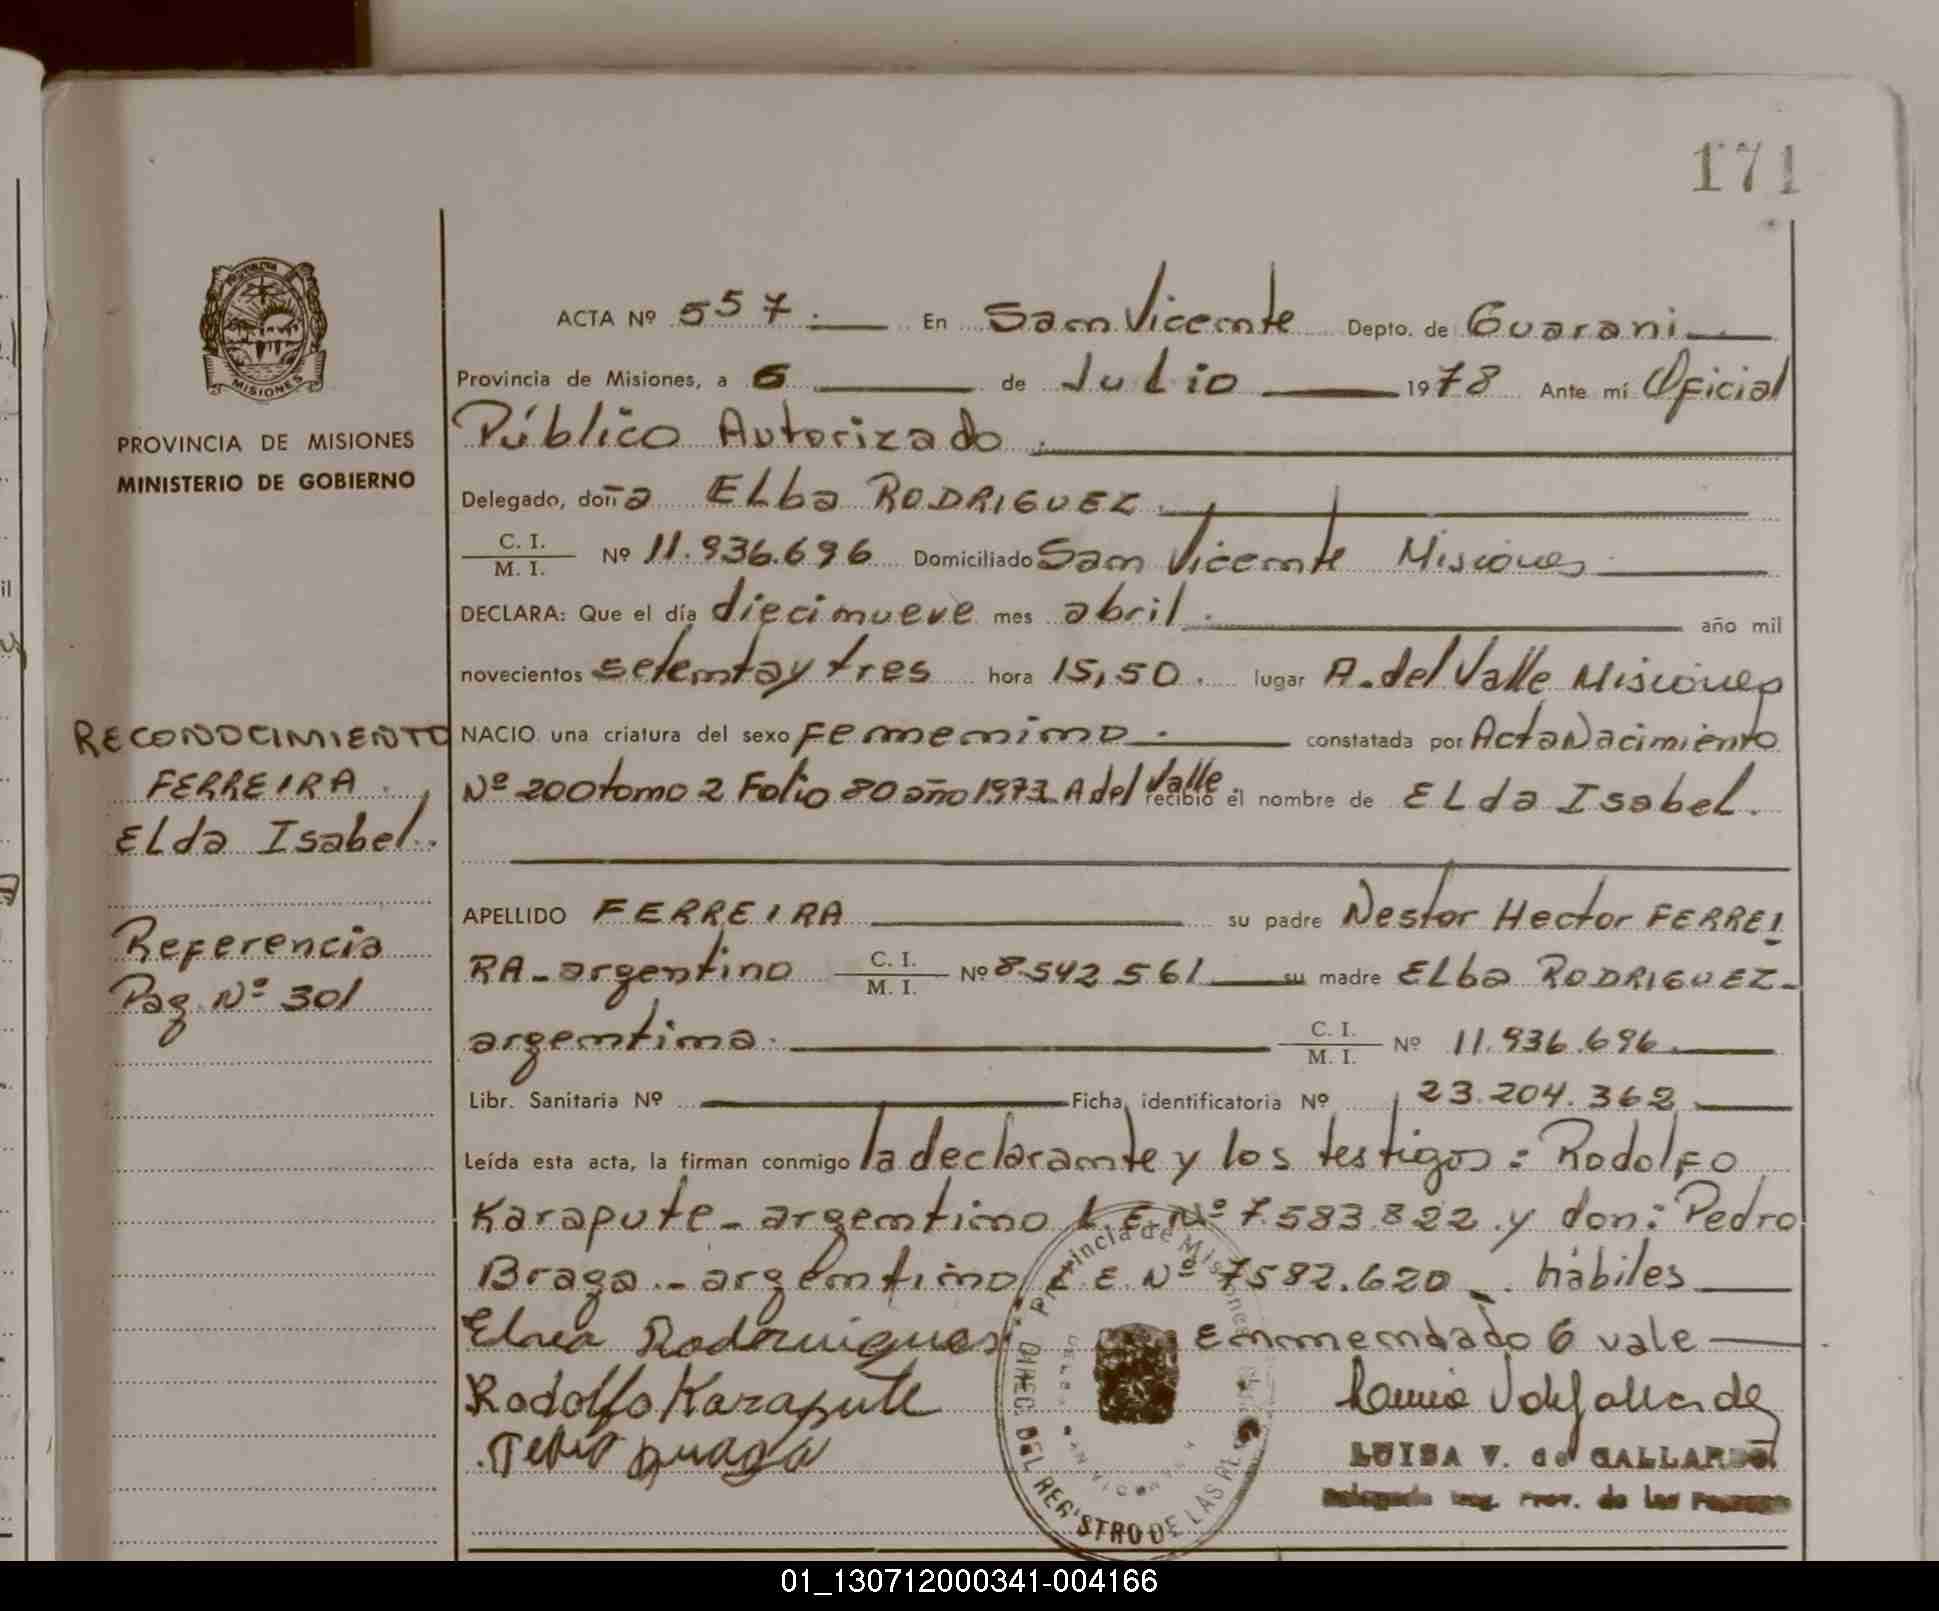 171
PROVINCIA DE MISIONES
MINISTERIO DE GOBIERNO
RECONOCIMIENTO
FERREIRA.
Elda Isabel.
Referencia
Pag. Nº 301
ACTA Nº 557. En San Vicente Depto. de Guarani
Provincia de Misiones, a 6 de Julio 1978 Ante mí Oficial
Público Autorizado.
Delegado, doña Elba RODRIGUEZ
C. I. / M. I. Nº 11.936.696 Domiciliado San Vicente Misiones
DECLARA: Que el día diecinueve mes abril. año mil
novecientos setentay tres hora 15,50. lugar A. del Valle Misiones
NACIO una criatura del sexo femenino. constatada por Acta Nacimiento
Nº 200 tomo 2 Folio 80 año 1973 A del Valle. recibió el nombre de Elda Isabel.
APELLIDO FERREIRA su padre Nestor Hector FERREI
RA - argentino C. I. / M. I. Nº 8.542.561 su madre Elba RODRIGUEZ -
argentina. C. I. / M. I. Nº 11.936.696
Libr. Sanitaria Nº Ficha identificatoria Nº 23.204.362
Leída esta acta, la firman conmigo la declarante y los testigos: Rodolfo
Karapute - argentino L.E. Nº 7.583.822 y don: Pedro
Braga. - argentino L.E. Nº 7582.620 - hábiles
Enmendado 6 vale
Rodolfo Karapute
LUISA V. de GALLARDO
Provincia de Misiones
DIREC. DEL REGISTRO DE LAS
MISIONES
01_130712000341-004166